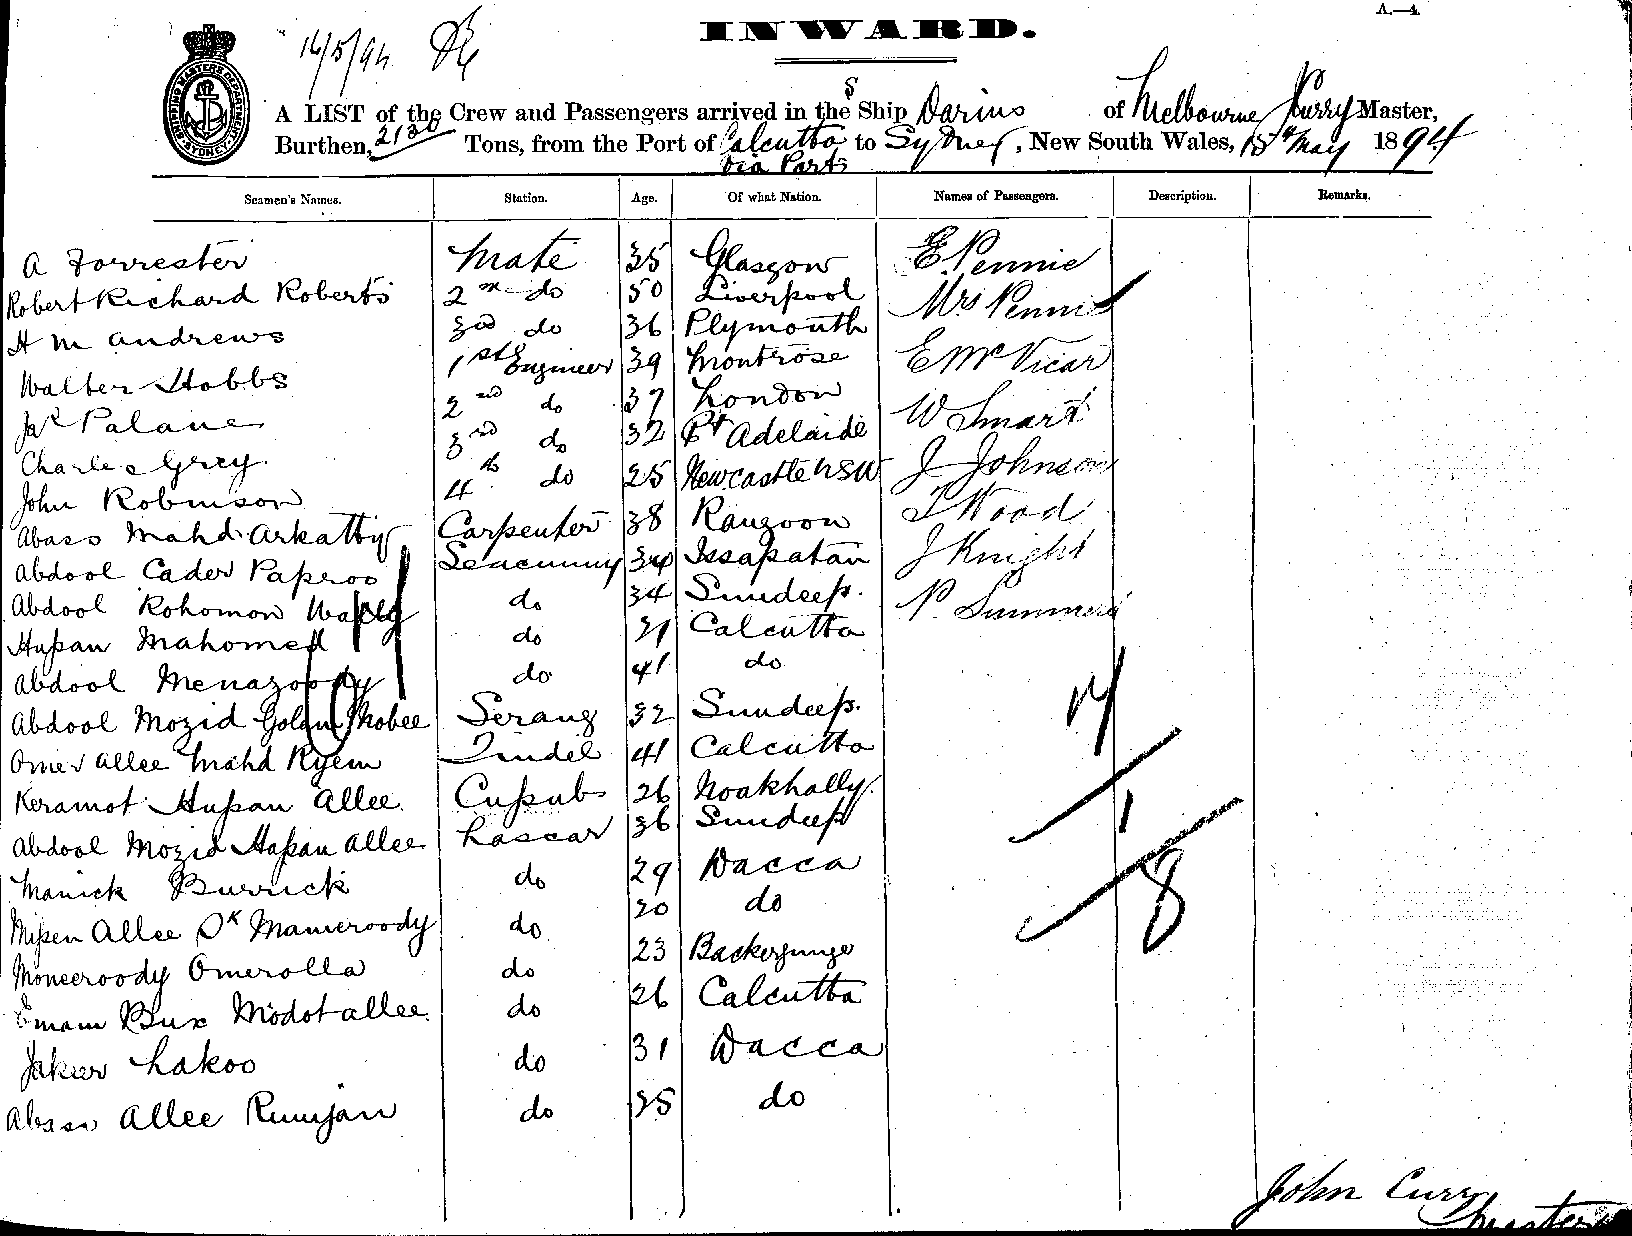 A.—4.
INWARD.
SHIPPING MASTER'S DEPARTMENT SYDNEY
A LIST of the Crew and Passengers arrived in the S Ship Darius of Melbourne Curry Master,
Burthen, 2130 Tons, from the Port of Calcutta to Sydney, New South Wales, 15th May 1894
via Ports
Seamen's Names. Station. Age. Of what Nation. Names of Passengers. Description. Remarks.
A Forrester Mate 35 Glasgow E Pennie
Robert Richard Roberts 2nd do 50 Liverpool Mrs Pennie
H M Andrews 3rd do 36 Plymouth
Walter Hobbs 1st Engineer 39 Montrose E McVicar
Jas Palane 2nd do 37 London W Smart
Charles Grey 3rd do 32 Pt Adelaide
John Robinson 4th do 25 Newcastle NSW J Johnson
Abass Mahd Arkatty Carpenter 38 Rangoon T Wood
Abdool Cader Paproo Seacunny 34 Issapatan J Knight
Abdool Rohomon do 34 Sundeep. P. Summers
Hussan Mahomed do 31 Calcutta
Abdool Menazoody do 41 do
Abdool Mozid Golam Nobee Serang 32 Sundeep.
Omer Allee Mahd Ryem Tindel 41 Calcutta
Keramot Hussan Allee. Cussub 26 Noakhally.
Abdool Mozid Hassan Allee Lascar 36 Sundeep
Manick Burrick do 29 Dacca
Missen Allee Sk Mameroody do 20 do
Moneeroody Omerolla do 23 Backergunge
Emam Bux Modot allee. do 26 Calcutta
Jakeer Lakoo do 31 Dacca
Abass Allee Rumjan do 25 do
1
8
John Curry
Master